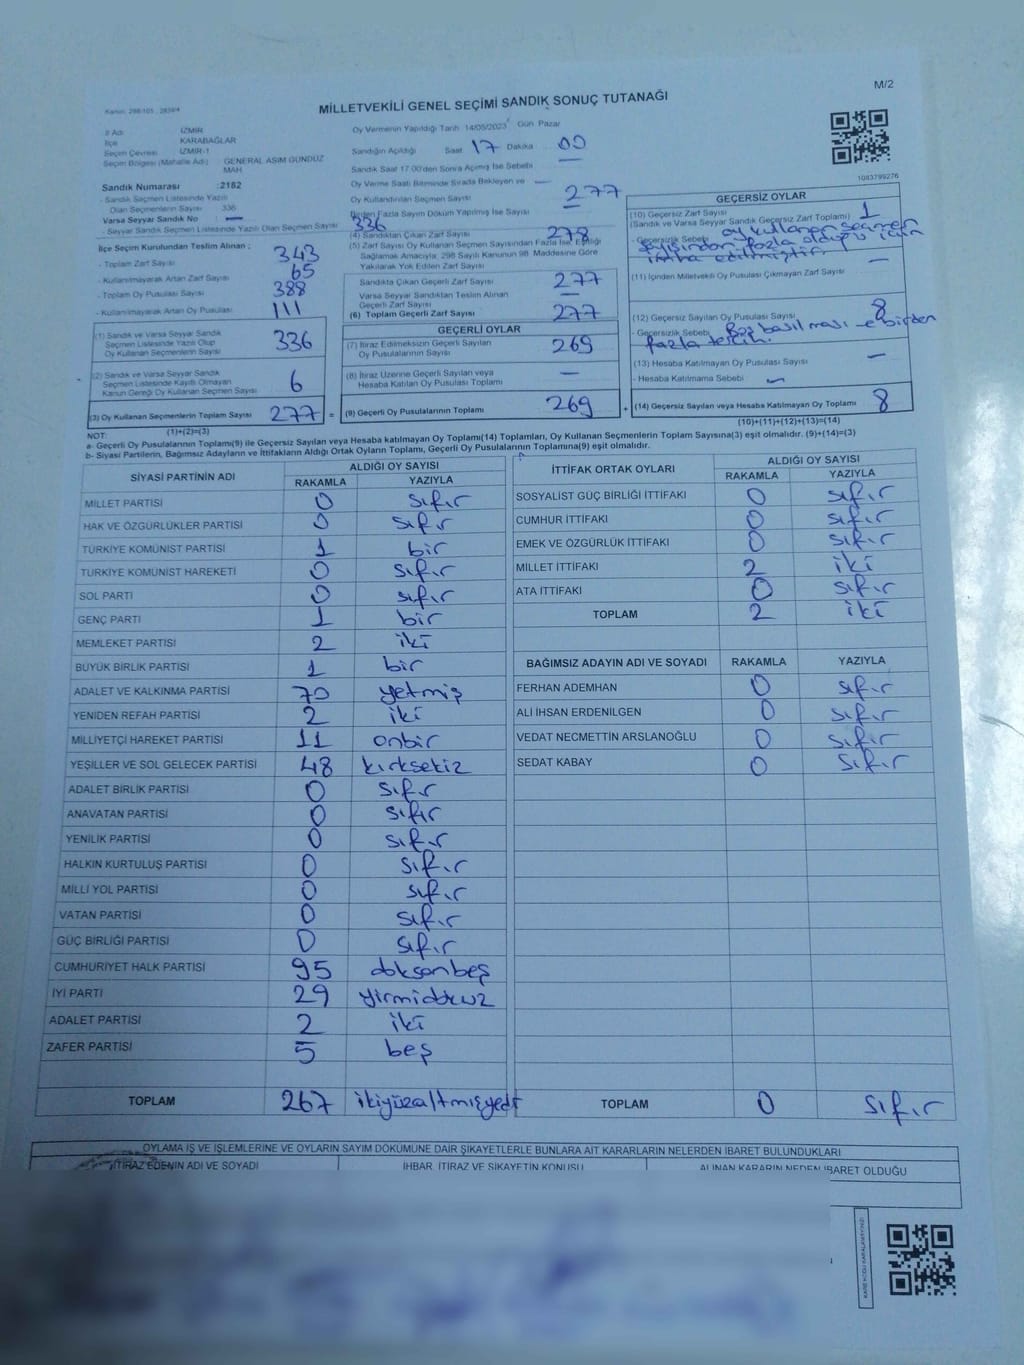 M/2
Kanun: 298/105 , 2839/4
MİLLETVEKİLİ GENEL SEÇİMİ SANDIK SONUÇ TUTANAĞI
1083799276
İl Adı İZMİR
İlçe KARABAĞLAR
Seçim Çevresi İZMİR-1
Seçim Bölgesi (Mahalle Adı) GENERAL ASIM GÜNDÜZ
MAH
Sandık Numarası :2182
- Sandık Seçmen Listesinde Yazılı
Olan Seçmenlerin Sayısı : 336
Varsa Seyyar Sandık No : —
- Seyyar Sandık Seçmen Listesinde Yazılı Olan Seçmen Sayısı 336
İlçe Seçim Kurulundan Teslim Alınan ;
- Toplam Zarf Sayısı 343
- Kullanılmayarak Artan Zarf Sayısı 65
- Toplam Oy Pusulası Sayısı 388
- Kullanılmayarak Artan Oy Pusulası 111
(1) Sandık ve Varsa Seyyar Sandık
Seçmen Listesinde Yazılı Olup
Oy Kullanan Seçmenlerin Sayısı 336
(2) Sandık ve Varsa Seyyar Sandık
Seçmen Listesinde Kayıtlı Olmayan
Kanun Gereği Oy Kullanan Seçmen Sayısı 6
(3) Oy Kullanan Seçmenlerin Toplam Sayısı 277 =
(1)+(2)=(3)
Oy Vermenin Yapıldığı Tarih 14/05/2023 Gün Pazar
Sandığın Açıldığı Saat 17 Dakika 00
Sandık Saat 17:00'den Sonra Açılmış İse Sebebi —
Oy Verme Saati Bitiminde Sırada Bekleyen ve —
Oy Kullandırılan Seçmen Sayısı 277
Birden Fazla Sayım Döküm Yapılmış İse Sayısı —
(4) Sandıktan Çıkan Zarf Sayısı 278
(5) Zarf Sayısı Oy Kullanan Seçmen Sayısından Fazla İse, Eşitliği
Sağlamak Amacıyla, 298 Sayılı Kanunun 98. Maddesine Göre
Yakılarak Yok Edilen Zarf Sayısı
Sandıkta Çıkan Geçerli Zarf Sayısı 277
Varsa Seyyar Sandıktan Teslim Alınan
Geçerli Zarf Sayısı —
(6) Toplam Geçerli Zarf Sayısı 277
GEÇERLİ OYLAR
(7) İtiraz Edilmeksizin Geçerli Sayılan
Oy Pusulalarının Sayısı 269
(8) İtiraz Üzerine Geçerli Sayılan veya
Hesaba Katılan Oy Pusulası Toplamı —
(9) Geçerli Oy Pusulalarının Toplamı 269 +
GEÇERSİZ OYLAR
(10) Geçersiz Zarf Sayısı
(Sandık ve Varsa Seyyar Sandık Geçersiz Zarf Toplamı) 1
- Geçersizlik Sebebi oy kullanan seçmen
sayısından fazla olduğu için
imha edilmiştir.
(11) İçinden Milletvekili Oy Pusulası Çıkmayan Zarf Sayısı —
(12) Geçersiz Sayılan Oy Pusulası Sayısı 8
- Geçersizlik Sebebi Boş basılması ve birden
fazla tercih.
(13) Hesaba Katılmayan Oy Pusulası Sayısı —
- Hesaba Katılmama Sebebi —
(14) Geçersiz Sayılan veya Hesaba Katılmayan Oy Toplamı 8
(10)+(11)+(12)+(13)=(14)
NOT:
a- Geçerli Oy Pusulalarının Toplamı(9) ile Geçersiz Sayılan veya Hesaba katılmayan Oy Toplamı(14) Toplamları, Oy Kullanan Seçmenlerin Toplam Sayısına(3) eşit olmalıdır. (9)+(14)=(3)
b- Siyasi Partilerin, Bağımsız Adayların ve İttifakların Aldığı Ortak Oyların Toplamı, Geçerli Oy Pusulalarının Toplamına(9) eşit olmalıdır.
SİYASİ PARTİNİN ADI ALDIĞI OY SAYISI
RAKAMLA YAZIYLA
MİLLET PARTİSİ 0 sıfır
HAK VE ÖZGÜRLÜKLER PARTİSİ 0 sıfır
TÜRKİYE KOMÜNİST PARTİSİ 1 bir
TÜRKİYE KOMÜNİST HAREKETİ 0 sıfır
SOL PARTİ 0 sıfır
GENÇ PARTİ 1 bir
MEMLEKET PARTİSİ 2 iki
BÜYÜK BİRLİK PARTİSİ 1 bir
ADALET VE KALKINMA PARTİSİ 70 yetmiş
YENİDEN REFAH PARTİSİ 2 iki
MİLLİYETÇİ HAREKET PARTİSİ 11 onbir
YEŞİLLER VE SOL GELECEK PARTİSİ 48 kırksekiz
ADALET BİRLİK PARTİSİ 0 sıfır
ANAVATAN PARTİSİ 0 sıfır
YENİLİK PARTİSİ 0 sıfır
HALKIN KURTULUŞ PARTİSİ 0 sıfır
MİLLİ YOL PARTİSİ 0 sıfır
VATAN PARTİSİ 0 sıfır
GÜÇ BİRLİĞİ PARTİSİ 0 sıfır
CUMHURİYET HALK PARTİSİ 95 doksanbeş
İYİ PARTİ 29 yirmidokuz
ADALET PARTİSİ 2 iki
ZAFER PARTİSİ 5 beş
TOPLAM 267 ikiyüzaltmışyedi
İTTİFAK ORTAK OYLARI ALDIĞI OY SAYISI
RAKAMLA YAZIYLA
SOSYALİST GÜÇ BİRLİĞİ İTTİFAKI 0 sıfır
CUMHUR İTTİFAKI 0 sıfır
EMEK VE ÖZGÜRLÜK İTTİFAKI 0 sıfır
MİLLET İTTİFAKI 2 iki
ATA İTTİFAKI 0 sıfır
TOPLAM 2 iki
BAĞIMSIZ ADAYIN ADI VE SOYADI RAKAMLA YAZIYLA
FERHAN ADEMHAN 0 sıfır
ALİ İHSAN ERDENİLGEN 0 sıfır
VEDAT NECMETTİN ARSLANOĞLU 0 sıfır
SEDAT KABAY 0 sıfır
TOPLAM 0 sıfır
OYLAMA İŞ VE İŞLEMLERİNE VE OYLARIN SAYIM DÖKÜMÜNE DAİR ŞİKAYETLERLE BUNLARA AİT KARARLARIN NELERDEN İBARET BULUNDUKLARI
İTİRAZ EDENİN ADI VE SOYADI İHBAR, İTİRAZ VE ŞİKAYETİN KONUSU ALINAN KARARIN NEDEN İBARET OLDUĞU
KARE KODU KARALAMAYINIZ!